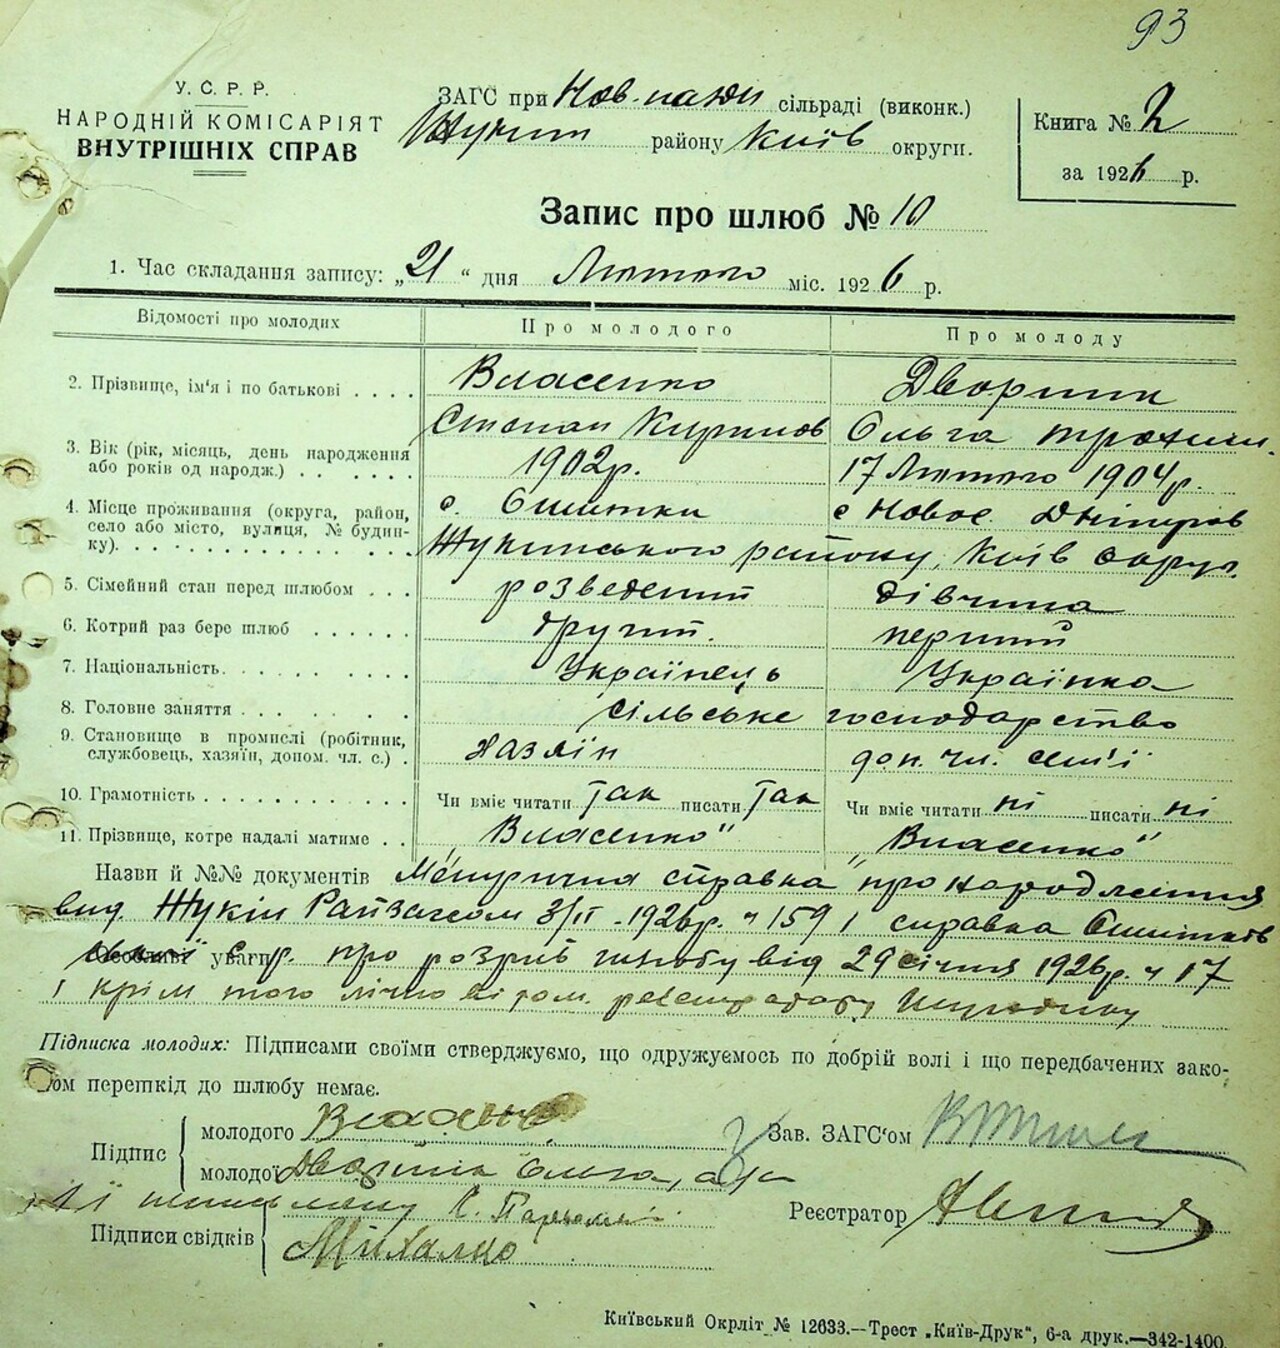 93
У.С.Р.Р.
НАРОДНІЙ КОМІСАРІЯТ
ВНУТРІШНІХ СПРАВ
ЗАГС при сільраді (виконк.)
Жукин району Київ округи.
Книга № 2
за 1926 р.
Запис про шлюб № 10
1. Час складання запису: „21“ дня Лютого міс. 1926 р.
Відомості про молодих Про молодого Про молоду
2. Прізвище, ім'я і по батькові . . . . Власенко Дворник
Степан Ольга Трохим.
3. Вік (рік, місяць, день народження або років од народж.) . . . . . . 1902р. 17 Лютого 1904р.
4. Місце проживання (округа, район, село або місто, вулиця, № будинку). с. Ошитки с Новос. Дніпров
Жукинського району, Київ округ.
5. Сімейний стан перед шлюбом . . . розведений дівчина
6. Котрий раз бере шлюб . . . . . . другий. перший
7. Національність. . . . . . . . . . Українець Українка
8. Головне заняття . . . . . . . . . сільське господарство
9. Становище в промислі (робітник, службовець, хазяїн, допом. чл. с.) . хазяїн доп. чл. сем'ї
10. Грамотність . . . . . . . . . . . . Чи вміє читати так писати так Чи вміє читати ні писати ні
11. Прізвище, котре надалі матиме . . „Власенко" „Власенко"
Назви й №№ документів Метрична справка про народження
вид Жукін Райзагсом 3/II -1926р. ч 159 і справка Ошитків
Особливі уваги С.р. про розрив шлюбу від 29 січня 1926р. ч 17
і крім того лічно
Підписка молодих: Підписами своїми стверджуємо, що одружуємось по добрій волі і що передбачених зако-
ном перешкід до шлюбу немає.
Підпис молодого Власенко Зав. ЗАГС'ом
молодої Дворник Ольга, а за
її
Підписи свідків Михалко Реєстратор
Київський Окрліт № 12633.—Трест „Київ-Друк“, 6-а друк.—342-1400.